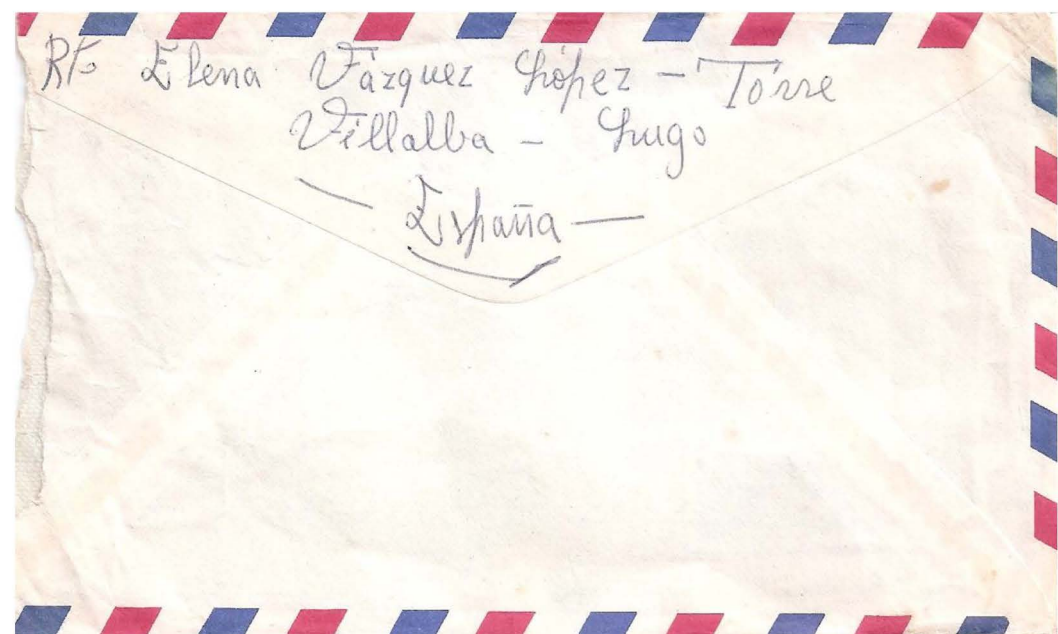 Rte Elena Vázquez López - Torre
Villalba - Lugo
- España -